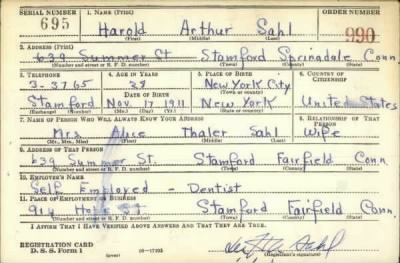 SERIAL NUMBER 1. NAME (Print) ORDER NUMBER
695 Harold Arthur Sahl 990
(First) (Middle) (Last)
2. ADDRESS (Print)
639 Summer St Stamford Springdale Conn.
(Number and street or R. F. D. number) (Town) (County) (State)
3. TELEPHONE 4. AGE IN YEARS 5. PLACE OF BIRTH 6. COUNTRY OF CITIZENSHIP
3-3765 28 New York City
DATE OF BIRTH (Town or county)
Stamford Nov. 17 1911 New York United States
(Exchange) (Number) (Mo.) (Day) (Yr.) (State or country)
7. NAME OF PERSON WHO WILL ALWAYS KNOW YOUR ADDRESS 8. RELATIONSHIP OF THAT PERSON
Mrs. Alice Thaler Sahl Wife
(Mr., Mrs., Miss) (First) (Middle) (Last)
9. ADDRESS OF THAT PERSON
639 Summer St. Stamford Fairfield Conn
(Number and street or R. F. D. number) (Town) (County) (State)
10. EMPLOYER'S NAME
Self Employed - Dentist
11. PLACE OF EMPLOYMENT OR BUSINESS
914 Hope St Stamford Fairfield Conn.
(Number and street or R. F. D. number) (Town) (County) (State)
I AFFIRM THAT I HAVE VERIFIED ABOVE ANSWERS AND THAT THEY ARE TRUE.
REGISTRATION CARD
D. S. S. Form 1 (over) 16—17105 Sahl
(Registrant's signature)